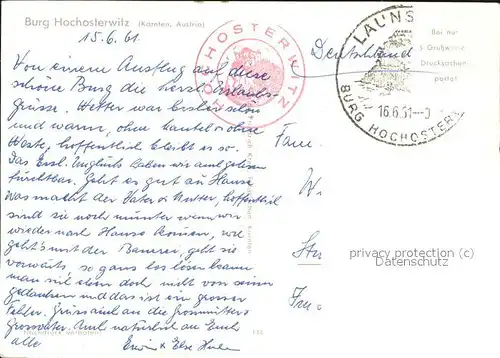 Burg Hochosterwitz (Kärnten, Austria)
15.6.61
HOCHOSTERWITZ
LAUNS
16.6.61
BURG HOCHOSTER
Bei nur
5 Grußworten
Drucksachen-
porto!
Deutschland
Von einem Ausflug auf diese
schöne Burg die herzl. Urlaubs-
grüsse. Wetter war bisher schön
und warm, ohne Mantel u. ohne
Weste, hoffentlich bleibt es so.
Das Unglück haben wir gelesen
furchtbar. Geht es gut zu Hause
was macht der Vater u. Mutter, hoffentlich
sind sie noch munter wenn wir
wieder nach Hause kommen, wie
geht's mit der Bauerei, geht sie
vorwärts, so ganz los lösen kann
man sich eben doch nicht von seinen
Gedanken und das ist ein grosser
Fehler. Gruss auch an die Grossmutter
Grossvater. Auch natürlich an Euch
alle
Erwin + Else
Fam.
W
Str
Fre
privacy protection (c)
Datenschutz